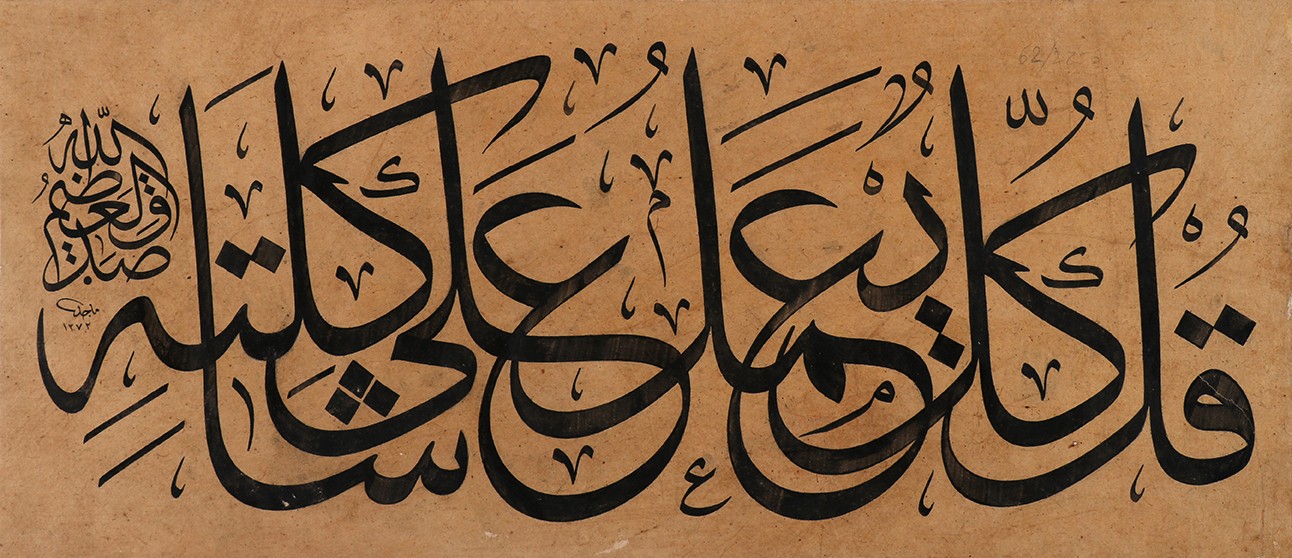 قُلْ كُلٌّ يَعْمَلُ عَلَى شَاكِلَتِهِ
صدق الله العظيم
ماجد
١٣٧٢